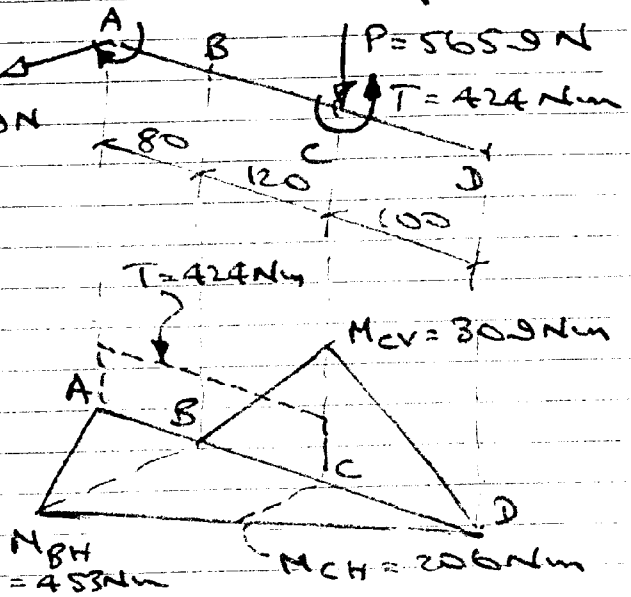 A
B
P=5659N
N
T=424Nm
80
C
120
D
100
T=424Nm
MCV=309Nm
A
B
C
D
MBH
=453Nm
MCH=206Nm